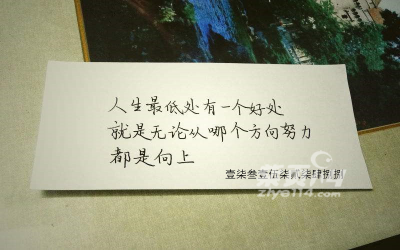 人生最低处有一个好处
就是无论从哪个方向努力
都是向上
壹柒叁壹伍柒贰柒肆捌捌